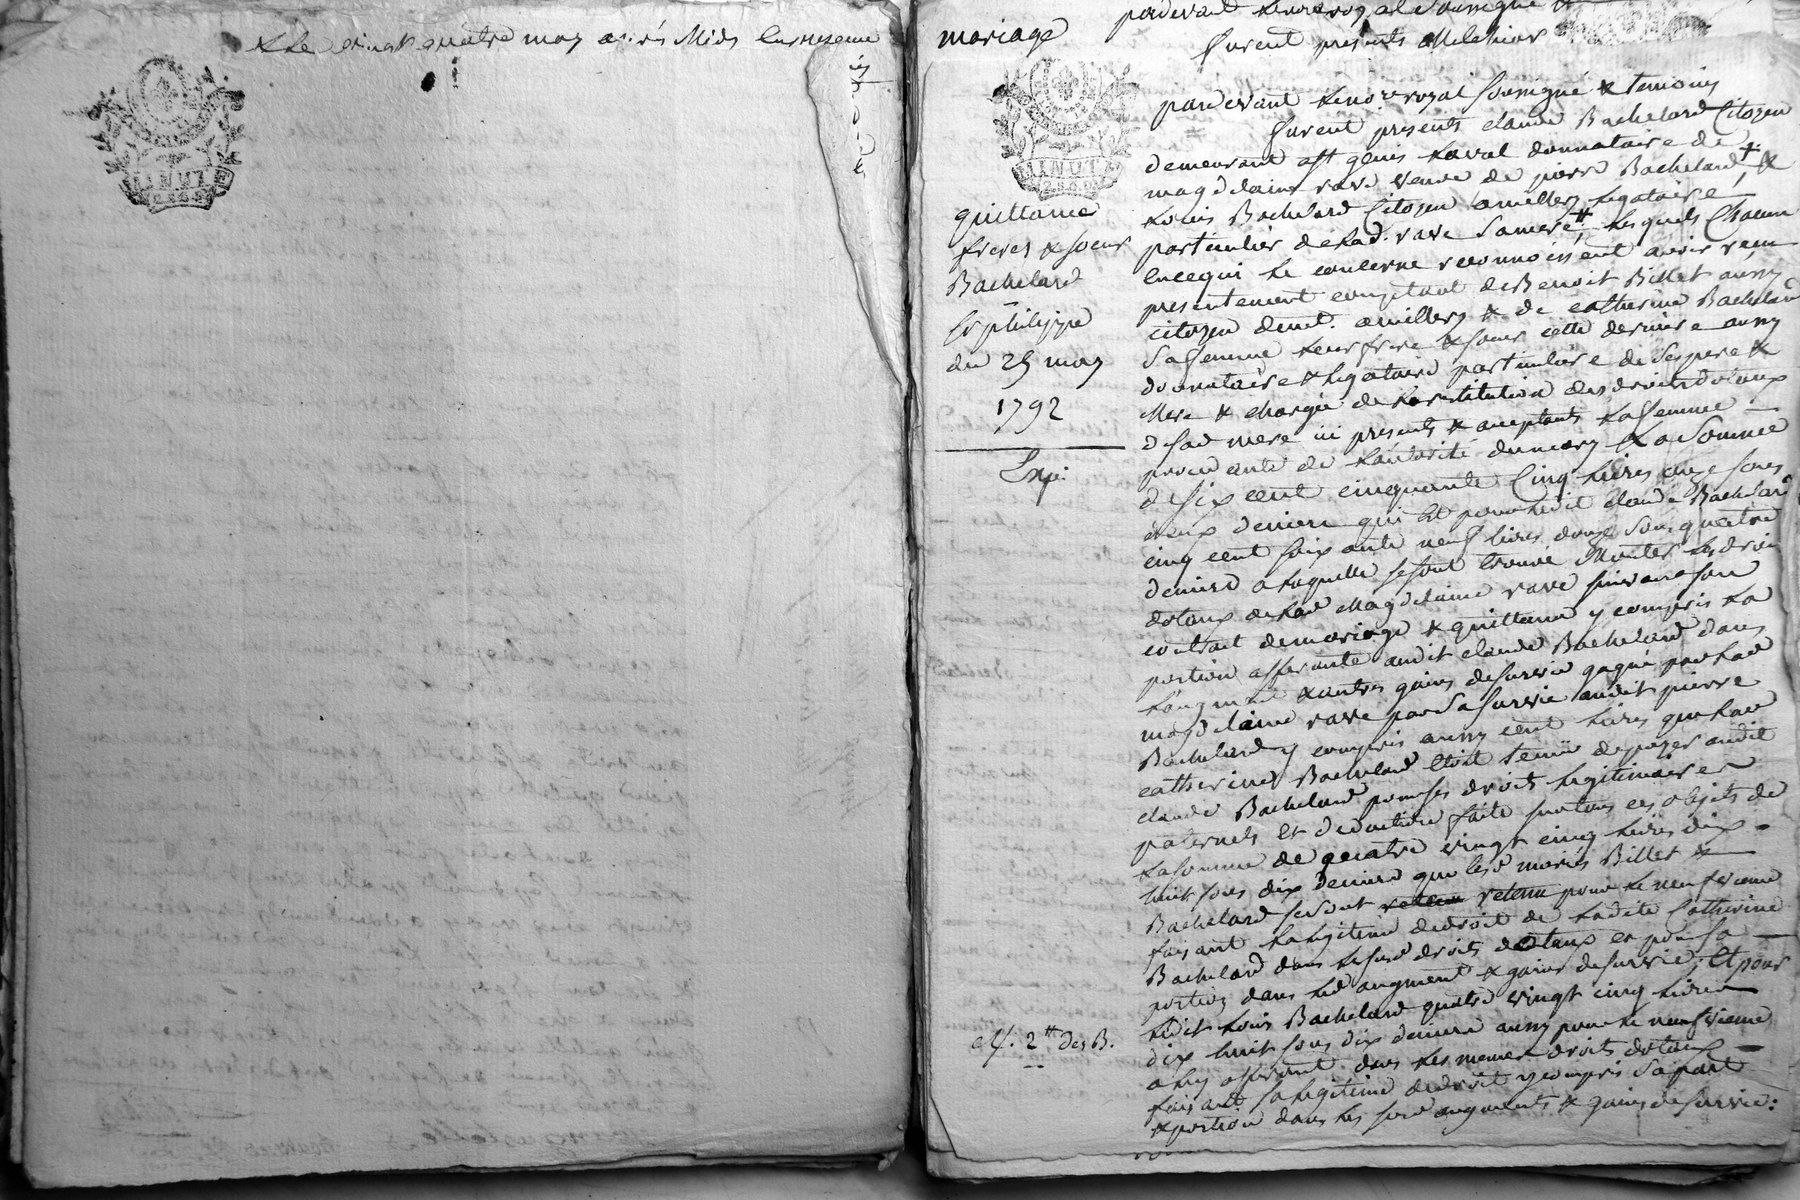 & Le vingt quatre may après Midy En presence
MINUTE
mariage
pardevant Lenore royal Soussigné &
furent presents Melchior
MINUTE
2.S.6.D
quittance
freres & soeur
Bachelard
St philippe
du 25 may
1792
Exp.
pardevant Leno.re royal soussigné & temoins
furent presents claude Bachelard Citoyen
demeurant a St genis Laval donnataire de
magdelaine rave veuve de pierre Bachelard + &
Louis Bachelard Citoyen a millery Legataire
particulier de Lad. rave Samere # Lesquels Chacun
Encequi Le concerne reconnoissent avoir reçu
presentement comptant de Benoit Billet aussy
citoyen demt. a millery & de catherine Bachelard
Safemme Leur frere & soeur cette derniere aussy
donnataire & Legataire particuliere de Ses pere &
Mere & chargée de La restitution des droits dotaux
de Sad mere ici presents & acceptants La femme
procedante de Lautorité dumary & La Somme
de Six cent cinquante Cinq Livres onze Sous
deux deniers qui Est pour Ledit claude Bachelard
cinq cent soixante neuf Livres douze Sous quatre
deniers a Laquelle se sont trouvé Monter Les droits
dotaux de Lad Magdelaine rave suivant son
contrat demariage & quittance y compris La
portion afferante audit claude Bachelard dans
Laugment & autres gains de survie gagné par Lad
magdelaine rave par Sa Survie audit pierre
Bachelard y compris aussy cent Livres que Lad
catherine Bachelard Etoit tenüe de payer audit
claude Bachelard pour ses droits Legitimaires
paternels Et deduction faite sur tous ces objets de
La somme de quatre vingt cinq Livres dix
huit sous dix deniers que Lesd mariés Billet &
Bachelard se sont retenu pour Le neufvieme
faisant La Legitime de droit de Ladite Catherine
Bachelard dans Lesd droits dotaux et pour Sa
portion dans Led augment & gains de survie; Et pour
Ledit Louis Bachelard quatre vingt cinq Livres
dix huit sous dix deniers aussy pour Le neufvieme
a Luy afferant dans Les memes droits dotaux
faisant Sa Legitime de droit y compris Sa part
& portion dans Les susd augments & gains de survie:
2tt des B.